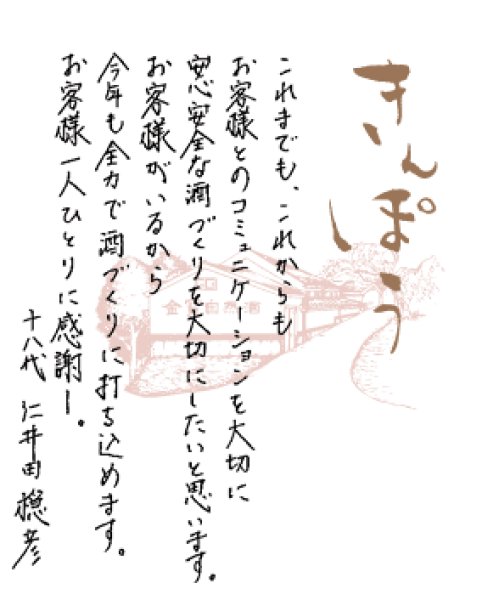 きんぽう
これまでも、これからも
お客様とのコミュニケーションを大切に
安心安全な酒づくりを大切にしたいと思います。
お客様がいるから
今年も全力で酒づくりに打ち込めます。
お客様一人ひとりに感謝ー。
十八代 仁井田穏彦
金寳自然酒